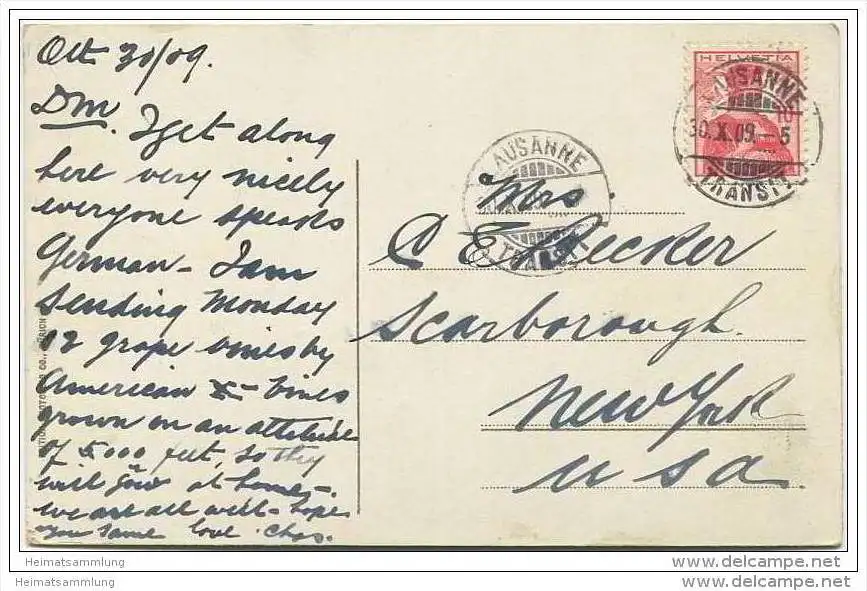 Oct 30/09.
Dm. I get along
here very nicely
everyone speaks
German - I am
sending Monday
12 grape vines by
American X - Vines
grown on an attitude
of 5000 feet, so they
will grow at home -
we are all well - hope
you same love. Chas.
HELVETIA
LAUSANNE
30.X.09.-5
TRANSIT
LAUSANNE
TRANSIT
Mrs
C E Becker
Scarborough.
New York
USA
Heimatsammlung
Heimatsammlung
www.delcampe.net
www.delcampe.net